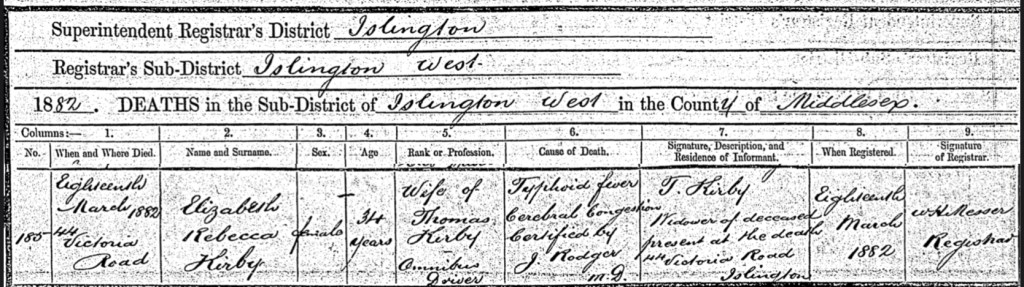 Superintendent Registrar's District Islington
Registrar's Sub-District Islington West
1882. DEATHS in the Sub-District of Islington West in the County of Middlesex.
Columns:— 1. 2. 3. 4. 5. 6. 7. 8. 9.
No. When and Where Died. Name and Surname. Sex. Age Rank or Profession. Cause of Death. Signature, Description, and Residence of Informant. When Registered. Signature of Registrar.
185
Eighteenth
March 1882
44
Victoria
Road
Elizabeth
Rebecca
Kirby
female
34
years
Wife of
Thomas
Kirby
Omnibus
Driver
Typhoid fever
Cerebral Congestion
Certified by
J. Rodger
M.D.
T. Kirby
Widower of deceased
present at the death
44 Victoria Road
Islington
Eighteenth
March
1882
Messer
Registrar